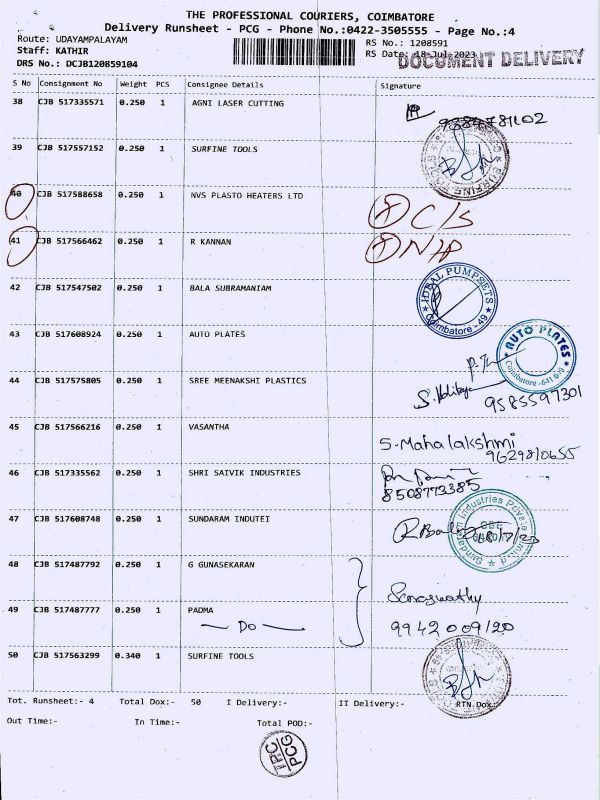 THE PROFESSIONAL COURIERS, COIMBATORE
Delivery Runsheet - PCG - Phone No.:0422-3505555 - Page No.:4
Route: UDAYAMPALAYAM
RS No.: 1208591
Staff: KATHIR
RS Date: 18-Jul-2023
DOCUMENT DELIVERY
DRS No.: DCJB120859104
S No Consignment No Weight PCS Consignee Details Signature
38 CJB 517335571 0.250 1 AGNI LASER CUTTING
39 CJB 517557152 0.250 1 SURFINE TOOLS
40 CJB 517588658 0.250 1 NVS PLASTO HEATERS LTD C/S
41 CJB 517566462 0.250 1 R KANNAN
42 CJB 517547502 0.250 1 BALA SUBRAMANIAM
IDEAL PUMPSETS
Coimbatore - 49
43 CJB 517608924 0.250 1 AUTO PLATES
AUTO PLATES
Coimbatore
44 CJB 517575805 0.250 1 SREE MEENAKSHI PLASTICS
9585597301
45 CJB 517566216 0.250 1 VASANTHA
S. Mahalakshmi
9629810655
46 CJB 517335562 0.250 1 SHRI SAIVIK INDUSTRIES
8508773385
47 CJB 517608748 0.250 1 SUNDARAM INDUTEI
Sundaram Industries Private Limited
48 CJB 517487792 0.250 1 G GUNASEKARAN
49 CJB 517487777 0.250 1 PADMA
Do
9942009120
50 CJB 517563299 0.340 1 SURFINE TOOLS
Tot. Runsheet:- 4 Total Dox:- 50 I Delivery:- II Delivery:- RTN.Dox:
Out Time:- In Time:- Total POD:-
TPC
PCG